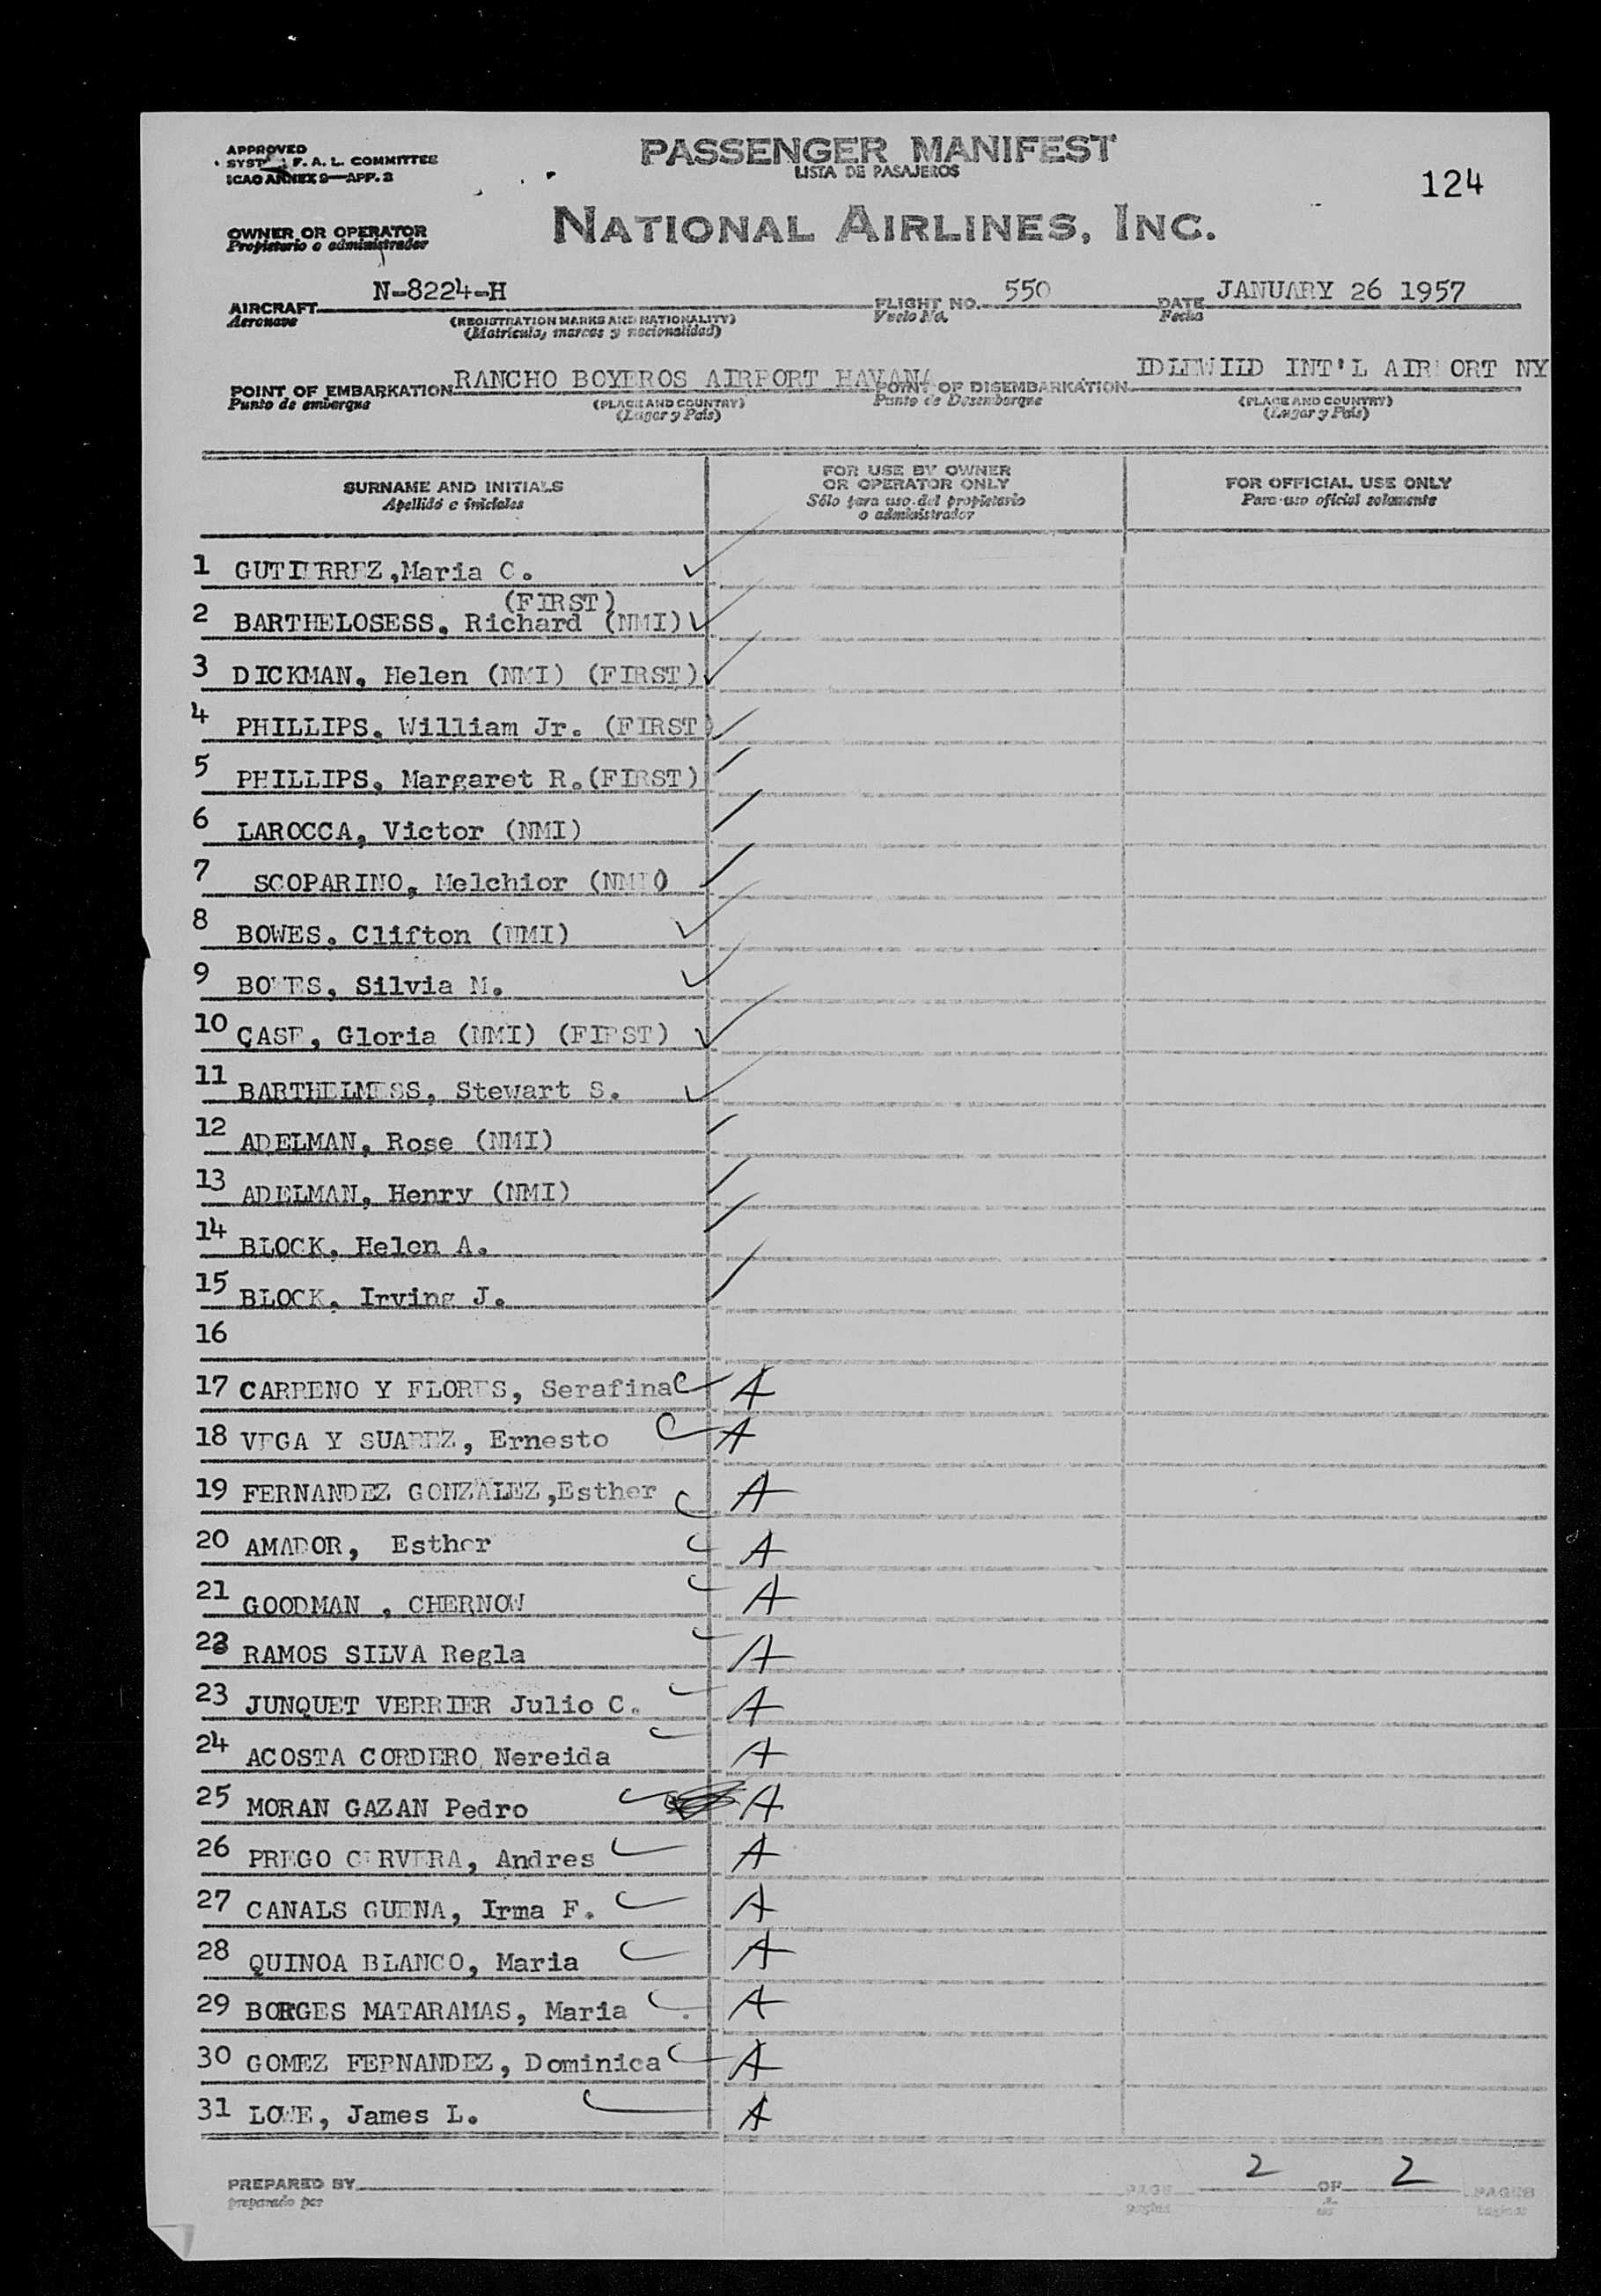 APPROVED
F. A. L. COMMITTEE
ICAO ANNEX 9—APP. 3
PASSENGER MANIFEST
LISTA DE PASAJEROS
124
OWNER OR OPERATOR
Propietario o administrador
NATIONAL AIRLINES, INC.
AIRCRAFT N-8224-H FLIGHT NO. 550 DATE JANUARY 26 1957
Aeronave (REGISTRATION MARKS AND NATIONALITY) Vuelo No. Fecha
(Matrícula, marcas y nacionalidad)
POINT OF EMBARKATION RANCHO BOYEROS AIRPORT HAVANA POINT OF DISEMBARKATION IDLEWILD INT'L AIRPORT NY
Punto de embarque (PLACE AND COUNTRY) Punto de Desembarque (PLACE AND COUNTRY)
(Lugar y País) (Lugar y País)
SURNAME AND INITIALS
Apellido e iniciales
FOR USE BY OWNER
OR OPERATOR ONLY
Sólo para uso del propietario
o administrador
FOR OFFICIAL USE ONLY
Para uso oficial solamente
1 GUTIERREZ,Maria C.
(FIRST)
2 BARTHELOSESS, Richard (NMI)
3 DICKMAN, Helen (NMI) (FIRST)
4 PHILLIPS, William Jr. (FIRST)
5 PHILLIPS, Margaret R.(FIRST)
6 LAROCCA, Victor (NMI)
7 SCOPARINO, Melchior (NMI)
8 BOWES, Clifton (NMI)
9 BOWES, Silvia M.
10 CASE, Gloria (NMI) (FIRST)
11 BARTHELMESS, Stewart S.
12 ADELMAN, Rose (NMI)
13 ADELMAN, Henry (NMI)
14 BLOCK, Helen A.
15 BLOCK, Irving J.
16
17 CARRENO Y FLORES, Serafina A
18 VEGA Y SUAREZ, Ernesto A
19 FERNANDEZ GONZALEZ,Esther A
20 AMADOR, Esther A
21 GOODMAN , CHERNOW A
22 RAMOS SILVA Regla A
23 JUNQUET VERRIER Julio C. A
24 ACOSTA CORDERO Nereida A
25 MORAN GAZAN Pedro A
26 PREGO CERVERA, Andres A
27 CANALS GUENA, Irma F. A
28 QUINOA BLANCO, Maria A
29 BORGES MATARAMAS, Maria A
30 GOMEZ FERNANDEZ, Dominica A
31 LOWE, James L. A
PREPARED BY
preparado por
PAGE 2 OF 2 PAGES